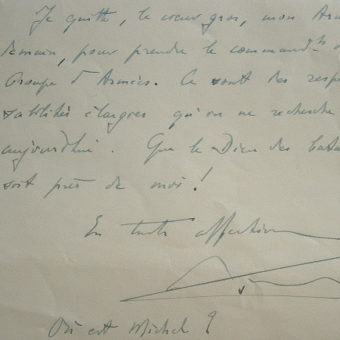 Je quitte, le cœur gros, mon Arm
demain, pour prendre le command^t d
Groupe d'Armées. Ce sont des resp
sabilités élargies qu'on ne recherche
aujourd'hui. Que le Dieu des bata
soit près de moi !
En toute affection
Où est Michel ?